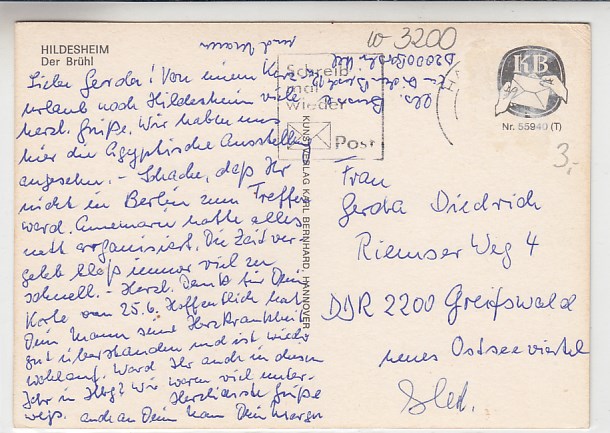 HILDESHEIM
Der Brühl
Liebe Gerda! Von einem Kurz-
urlaub nach Hildesheim viele
herzl. Grüße. Wir haben uns
hier die Ägyptische Ausstellung
angesehen. – Schade, daß Ihr
nicht in Berlin zum Treffen
ward. Annemarie hatte alles
nett organisiert. Die Zeit ver-
geht bloß immer viel zu
schnell. – Herzl. Dank für Deine
Karte vom 25.6. Hoffentlich hat
Dein Mann seine Herzkrankheit
gut überstanden und ist wieder
wohlauf. Ward Ihr auch in diesem
Jahr in Hbg? Wir waren viel unter-
wegs. Herzlichste Grüße
auch an Dein Mann Dein Margot
und Mann
W 3200
Schreib
mal
wieder
Post
KB
Nr. 55940 (T)
3,-
KUNSTVERLAG KARL BERNHARD, HANNOVER
Frau
Gerda Diedrich
Riemser Weg 4
DDR 2200 Greifswald
neues Ostseeviertel